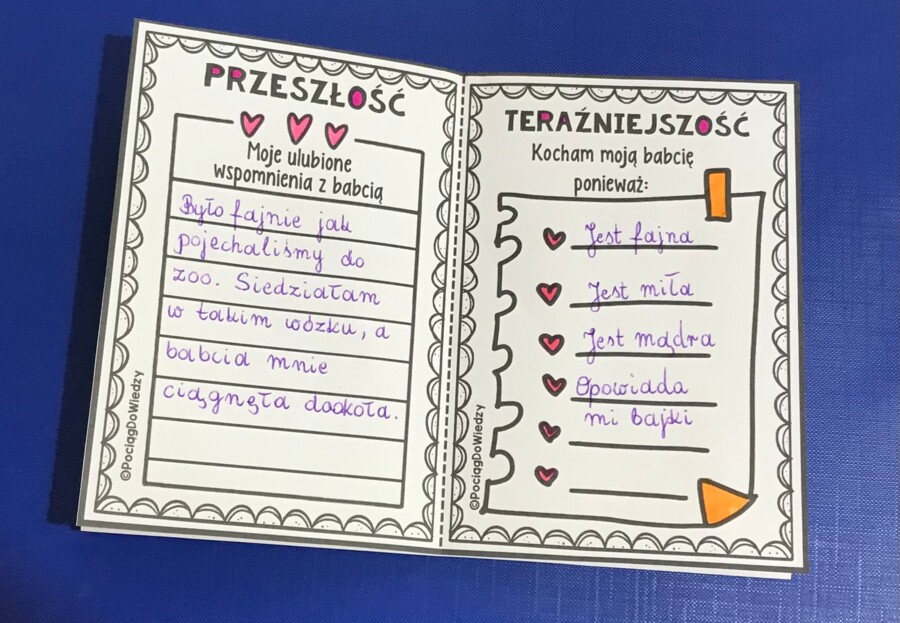 PRZESZŁOŚĆ
Moje ulubione
wspomnienia z babcią
Było fajnie jak
pojechaliśmy do
zoo. Siedziałam
w takim wózku, a
babcia mnie
ciągnęła dookoła.
©PociągDoWiedzy
TERAŹNIEJSZOŚĆ
Kocham moją babcię
ponieważ:
Jest fajna
Jest miła
Jest mądra
Opowiada
mi bajki
©PociągDoWiedzy